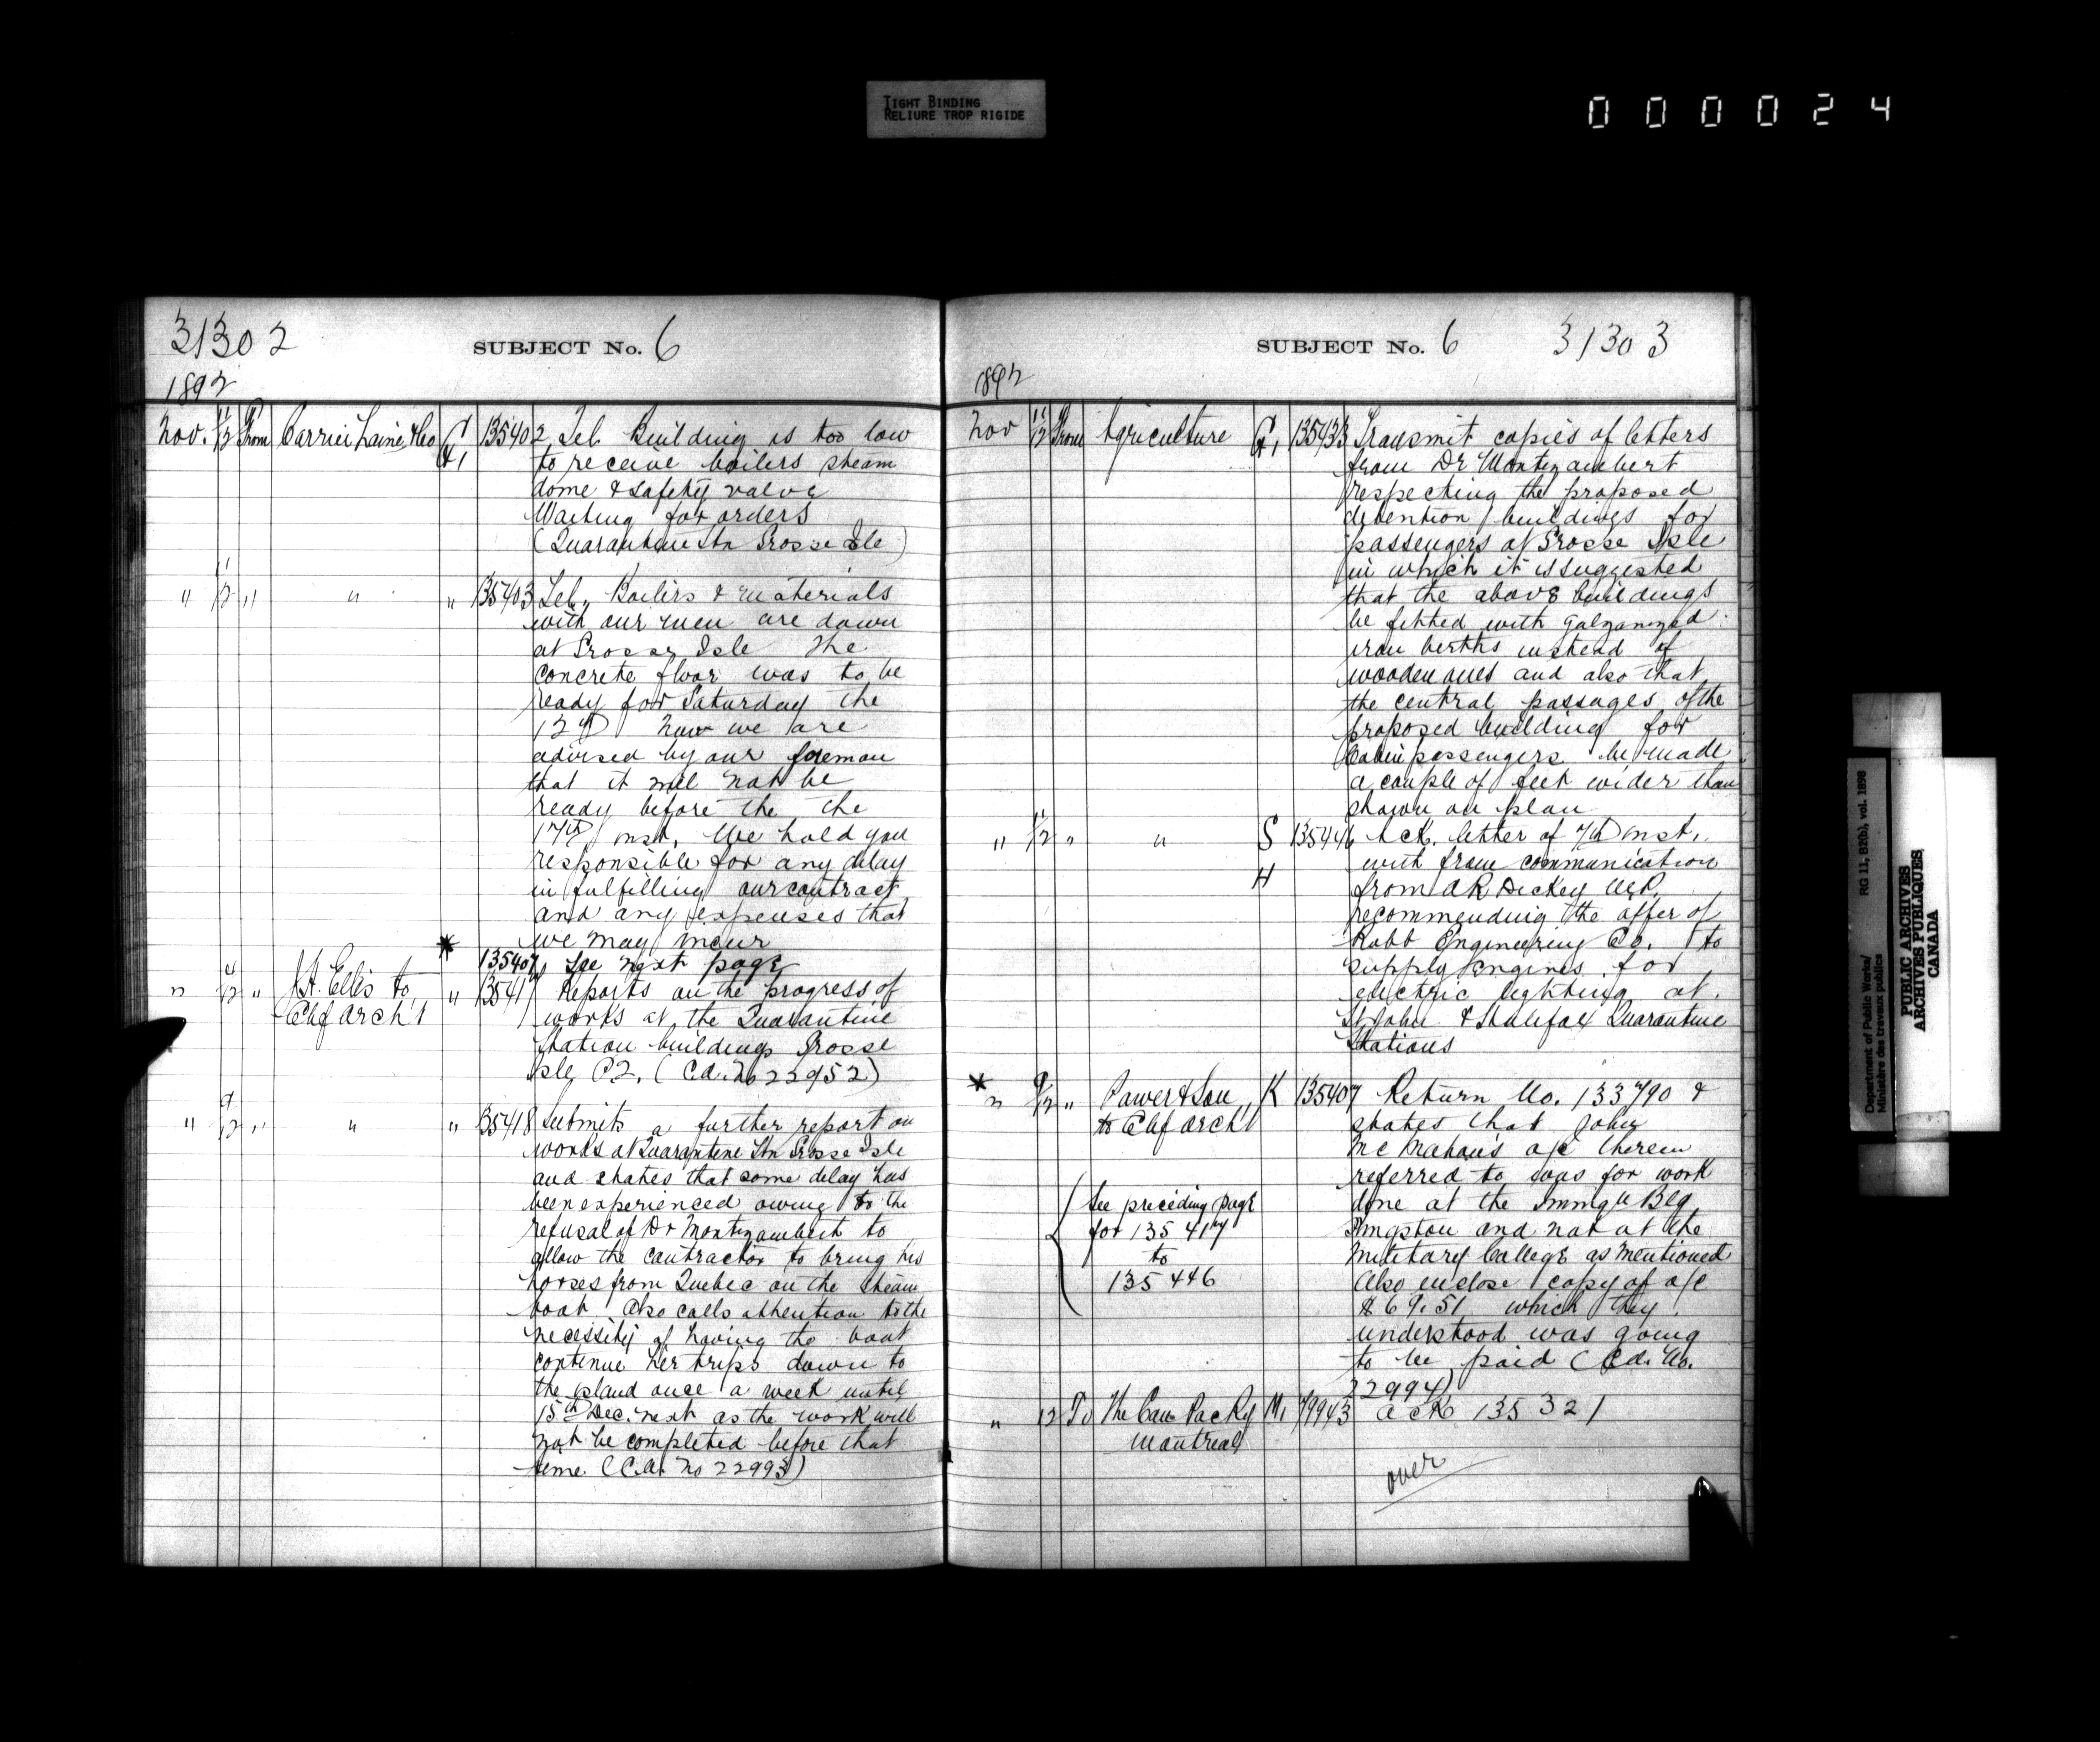 TIGHT BINDING
RELIURE TROP RIGIDE
000024
31302
SUBJECT No. 6
1892
Nov. 11/12 From Carrier Laine & Co G, 135402 Tel. Building is too low
to receive boilers steam
dome & safety valve
Waiting for orders
(Quarantine Stn Grosse Isle)
" 11/12 " " " 135403 Tel. Boilers & materials
with our men are down
at Grosse Isle The
concrete floor was to be
ready for Saturday the
12th Now we are
advised by our foreman
that it will not be
ready before the the
17th inst. We hold you
responsible for any delay
in fulfilling our contract
and any expenses that
we may incur
* 135407 See next page
" 4/12 " J.H. Ellis to Chf Archt " 135417 Reports on the progress of
works at the Quarantine
Station buildings Grosse
Isle P.Q. (C.A. No 22952)
" 9/12 " " " 135418 Submits a further report on
works at Quarantine Stn Grosse Isle
and states that some delay has
been experienced owing to the
refusal of Dr Montizambert to
allow the contractor to bring his
horses from Quebec on the steam
boat. Also calls attention to the
necessity of having the boat
continue her trips down to
the island once a week until
15th Dec. next as the work will
not be completed before that
time (C.A. No 22993)
SUBJECT No. 6
31303
1892
Nov 11/12 From Agriculture G, 135433 Transmit copies of letters
from Dr Montizambert
respecting the proposed
detention buildings for
passengers at Grosse Isle
in which it is suggested
that the above buildings
be fitted with galvanized
iron berths instead of
wooden ones and also that
the central passages of the
proposed building for
Cabin passengers be made
a couple of feet wider than
shown on plan
" 11/12 " " S H 135446 Ack. letter of 7th inst.
with from communication
from A R Dickey M.P.
recommending the offer of
Robb Engineering Co. to
supply engines for
electric lighting at
St John & Halifax Quarantine
Stations
* " 9/12 " Power & Son to Chf Archt K 135407 Return No. 133790 &
states that John
McMahon's a/c therein
referred to was for work
done at the Immgn Blg
Kingston and not at the
Military College as mentioned
Also enclose copy of a/c
$69.51 which they
understood was going
to be paid (C.A. No.
22994)
See preceding page
for 135417
to
135446
" 12 To The Can Packg Montreal M, 79943 Ack 135321
over
Department of Public Works/
Ministère des travaux publics
RG 11, B2(b), vol. 1898
PUBLIC ARCHIVES
ARCHIVES PUBLIQUES
CANADA